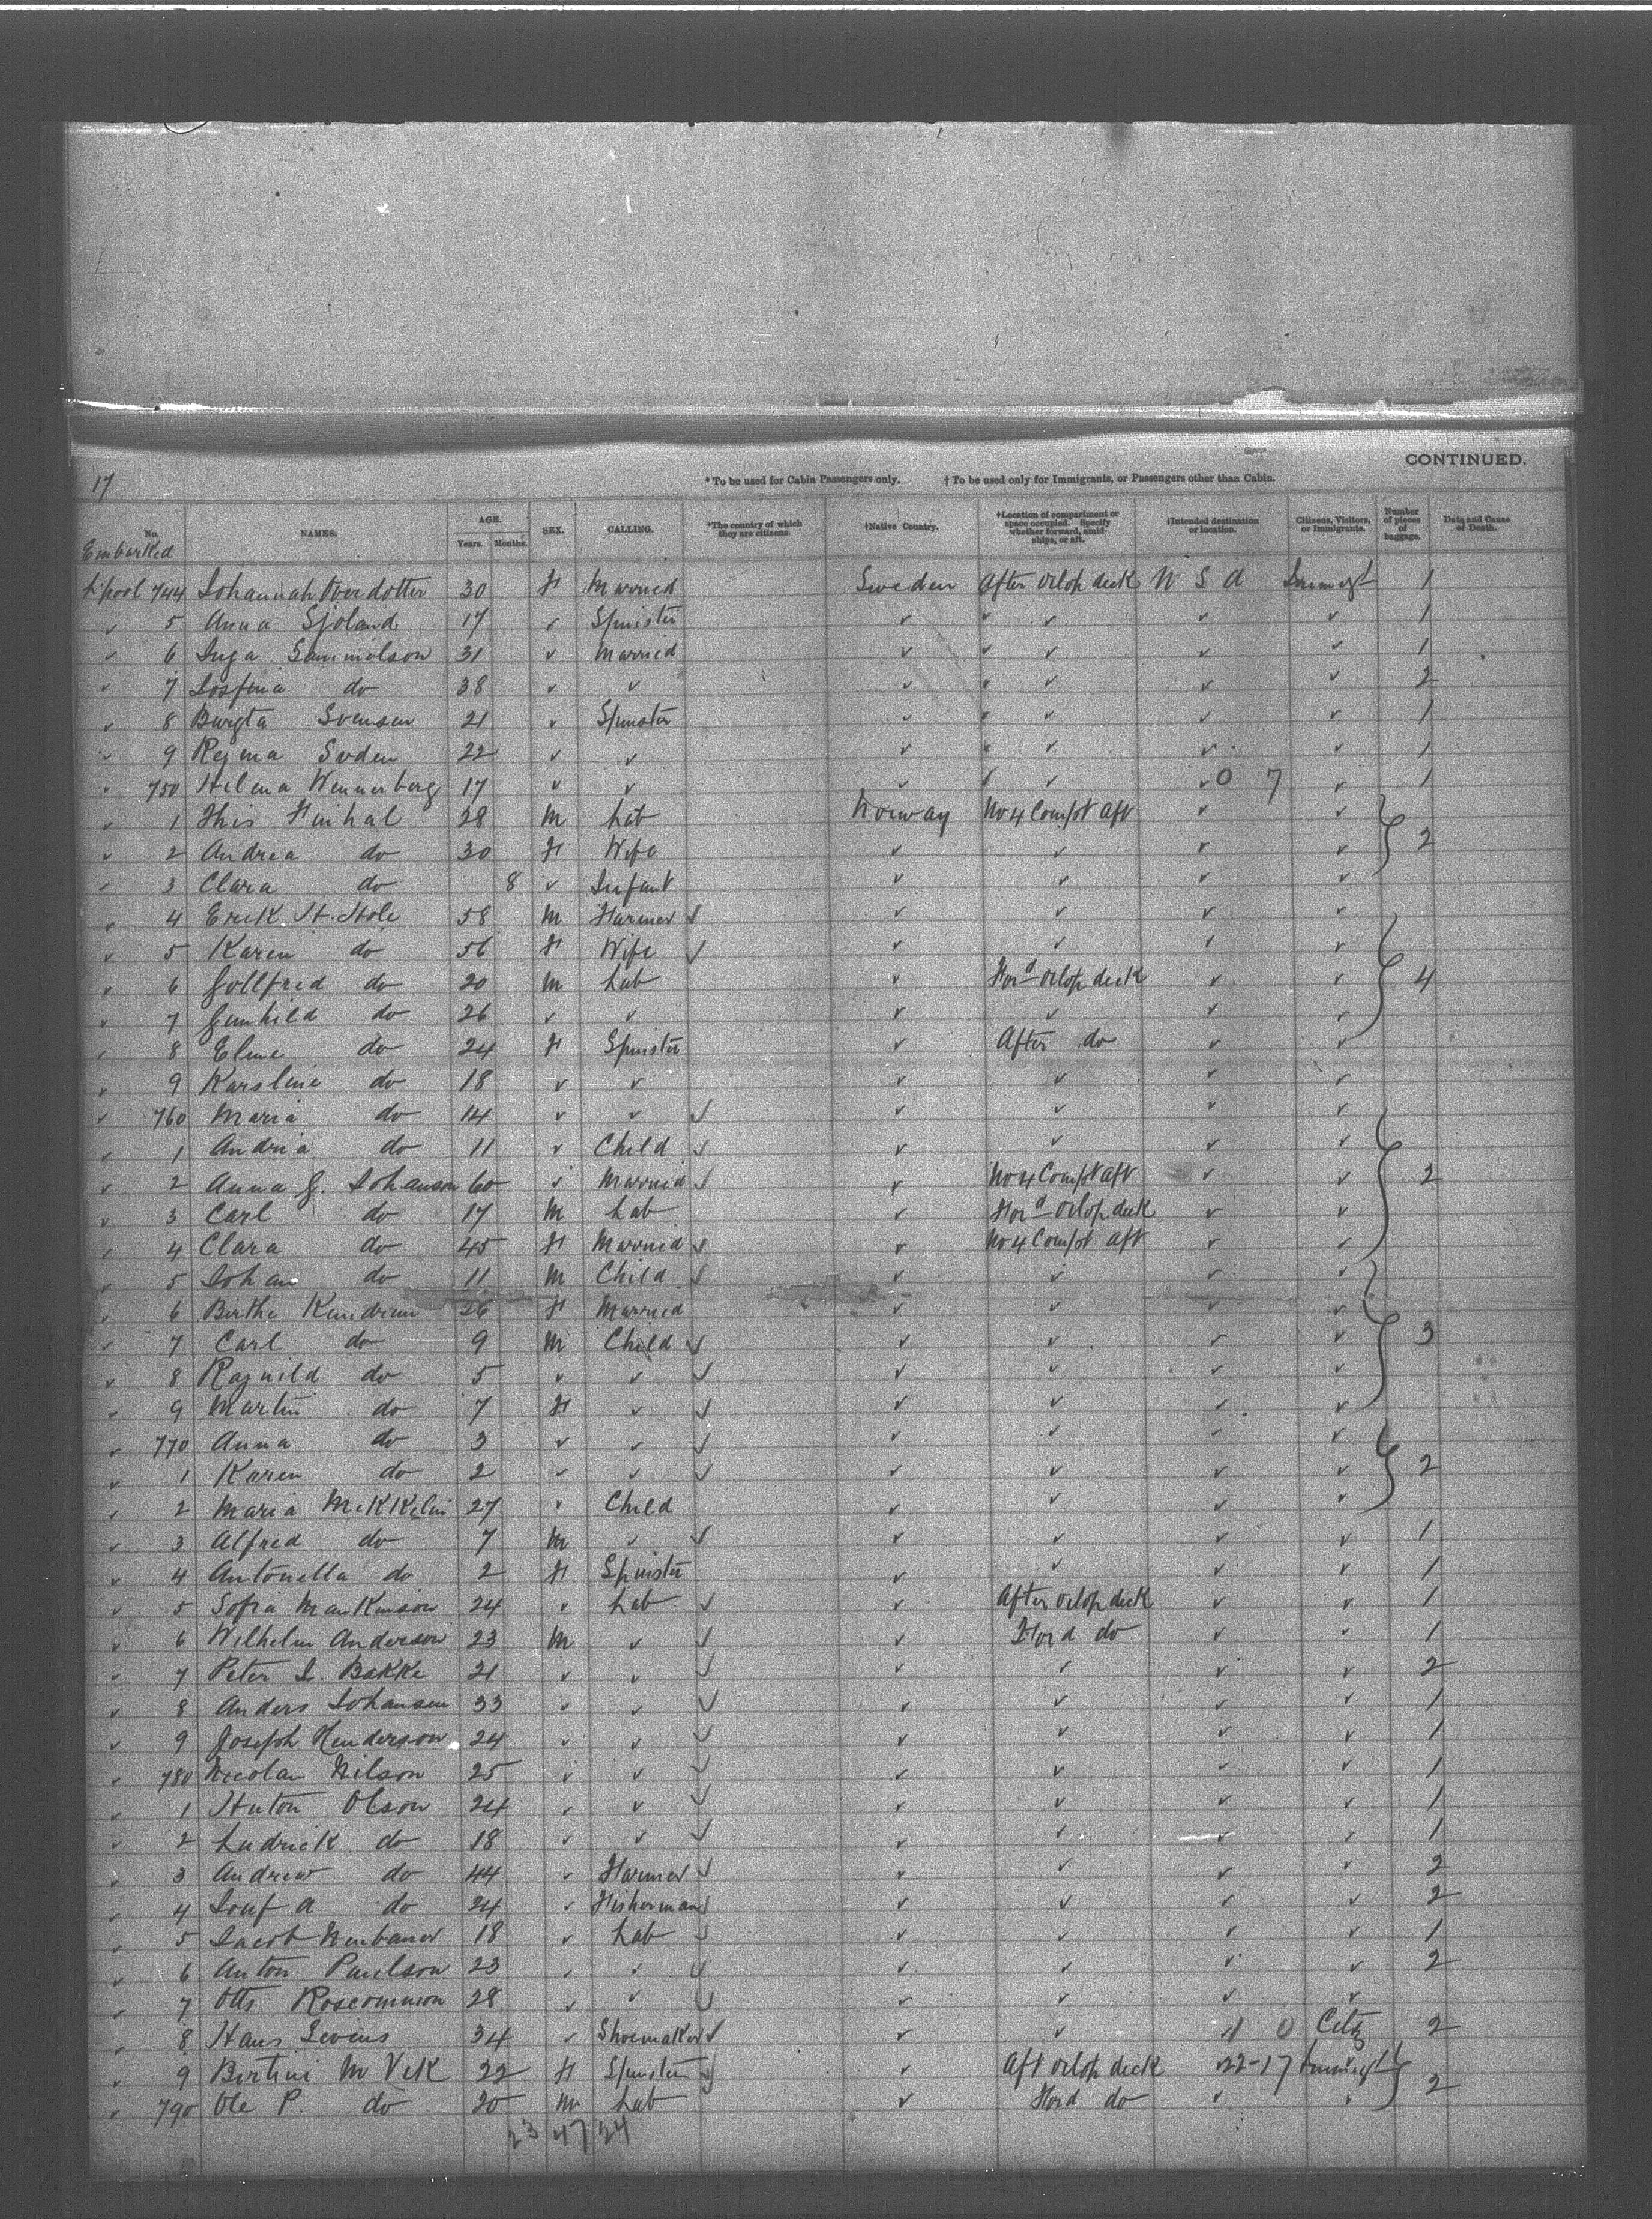 CONTINUED.
17 * To be used for Cabin Passengers only. † To be used only for Immigrants, or Passengers other than Cabin.
No. NAMES. AGE. Years. Months. SEX. CALLING. *The country of which they are citizens. †Native Country. †Location of compartment or space occupied. Specify whether forward, amidships, or aft. †Intended destination or location. Citizens, Visitors, or Immigrants. Number of pieces of baggage. Date and Cause of Death.
Embarked
L'pool 744 Johannah Overdotter 30 F Married Sweden After Orlop deck U S A Immigt 1
✓ 5 Anna Sjoland 17 ✓ Spinster ✓ ✓ ✓ ✓ ✓ 1
✓ 6 Inga Sammolson 31 ✓ Married ✓ ✓ ✓ ✓ ✓ 1
✓ 7 Josfina do 38 ✓ ✓ ✓ ✓ ✓ ✓ ✓ 2
✓ 8 Burgta Svensen 21 ✓ Spinster ✓ ✓ ✓ ✓ ✓ 1
✓ 9 Regma Soden 22 ✓ ✓ ✓ ✓ ✓ ✓ ✓ 1
✓ 750 Helena Wennerberg 17 ✓ ✓ ✓ ✓ ✓ ✓ 0 7 ✓ 1
✓ 1 This Finhal 28 M Lab Norway No 4 Compt Aft ✓ ✓
✓ 2 Andrea do 30 F Wife ✓ ✓ ✓ ✓ 2
✓ 3 Clara do 8 ✓ Infant ✓ ✓ ✓ ✓
✓ 4 Erick H. Hole 58 M Farmer ✓ ✓ ✓ ✓ ✓
✓ 5 Karen do 56 F Wife ✓ ✓ ✓ ✓
✓ 6 Gollfred do 20 M Lab ✓ Ford Orlop deck ✓ ✓ 4
✓ 7 Gunhild do 26 ✓ ✓ ✓ ✓ ✓ ✓
✓ 8 Eline do 24 F Spinster ✓ After do ✓ ✓
✓ 9 Karsline do 18 ✓ ✓ ✓ ✓ ✓ ✓
✓ 760 Maria do 14 ✓ ✓ ✓ ✓ ✓ ✓ ✓
✓ 1 Andria do 11 ✓ Child ✓ ✓ ✓ ✓ ✓
✓ 2 Anna G. Johanson 60 ✓ Married ✓ ✓ No 4 Compt Aft ✓ ✓ 2
✓ 3 Carl do 17 M Lab ✓ Ford Orlop deck ✓ ✓
✓ 4 Clara do 45 F Married ✓ ✓ No 4 Compt Aft ✓ ✓
✓ 5 Johan do 11 M Child ✓ ✓ ✓ ✓ ✓
✓ 6 Berthe Kendrum 26 F Married ✓ ✓ ✓ ✓
✓ 7 Carl do 9 M Child ✓ ✓ ✓ ✓ ✓ 3
✓ 8 Ragnild do 5 ✓ ✓ ✓ ✓ ✓ ✓ ✓
✓ 9 Martin do 7 F ✓ ✓ ✓ ✓ ✓ ✓
✓ 770 Anna do 3 ✓ ✓ ✓ ✓ ✓ ✓ ✓
✓ 1 Karen do 2 ✓ ✓ ✓ ✓ ✓ ✓ ✓ 2
✓ 2 Maria Mikkelin 27 ✓ Child ✓ ✓ ✓ ✓
✓ 3 Alfred do 7 M ✓ ✓ ✓ ✓ ✓ ✓ 1
✓ 4 Antonella do 2 F Spinster ✓ ✓ ✓ ✓ 1
✓ 5 Sofia Mankinson 24 ✓ Lab ✓ ✓ After Orlop deck ✓ ✓ 1
✓ 6 Wilhelm Anderson 23 M ✓ ✓ ✓ Ford do ✓ ✓ 1
✓ 7 Peter I. Bakke 21 ✓ ✓ ✓ ✓ ✓ ✓ ✓ 2
✓ 8 Anders Johansen 33 ✓ ✓ ✓ ✓ ✓ ✓ ✓ 1
✓ 9 Joseph Henderson 24 ✓ ✓ ✓ ✓ ✓ ✓ ✓ 1
✓ 780 Nicolan Nilson 25 ✓ ✓ ✓ ✓ ✓ ✓ ✓ 1
✓ 1 Huton Olson 24 ✓ ✓ ✓ ✓ ✓ ✓ ✓ 1
✓ 2 Ludrick do 18 ✓ ✓ ✓ ✓ ✓ ✓ ✓ 1
✓ 3 Andrew do 44 ✓ Farmer ✓ ✓ ✓ ✓ ✓ 2
✓ 4 A do 24 ✓ Fisherman ✓ ✓ ✓ ✓ ✓ 2
✓ 5 Jacob 18 ✓ Lab ✓ ✓ ✓ ✓ ✓ 1
✓ 6 Anton Paulson 23 ✓ ✓ ✓ ✓ ✓ ✓ ✓ 2
✓ 7 Otto Roscommon 28 ✓ ✓ ✓ ✓ ✓ ✓ ✓
✓ 8 Hans Sevins 34 ✓ Shoemaker ✓ ✓ ✓ 0 Citz 2
✓ 9 Bertini M Vek 22 F Spinster ✓ ✓ Aft Orlop deck 22-17 Immigt
✓ 790 Ole P. do 20 M Lab ✓ Ford do ✓ ✓ 2
23 47 24